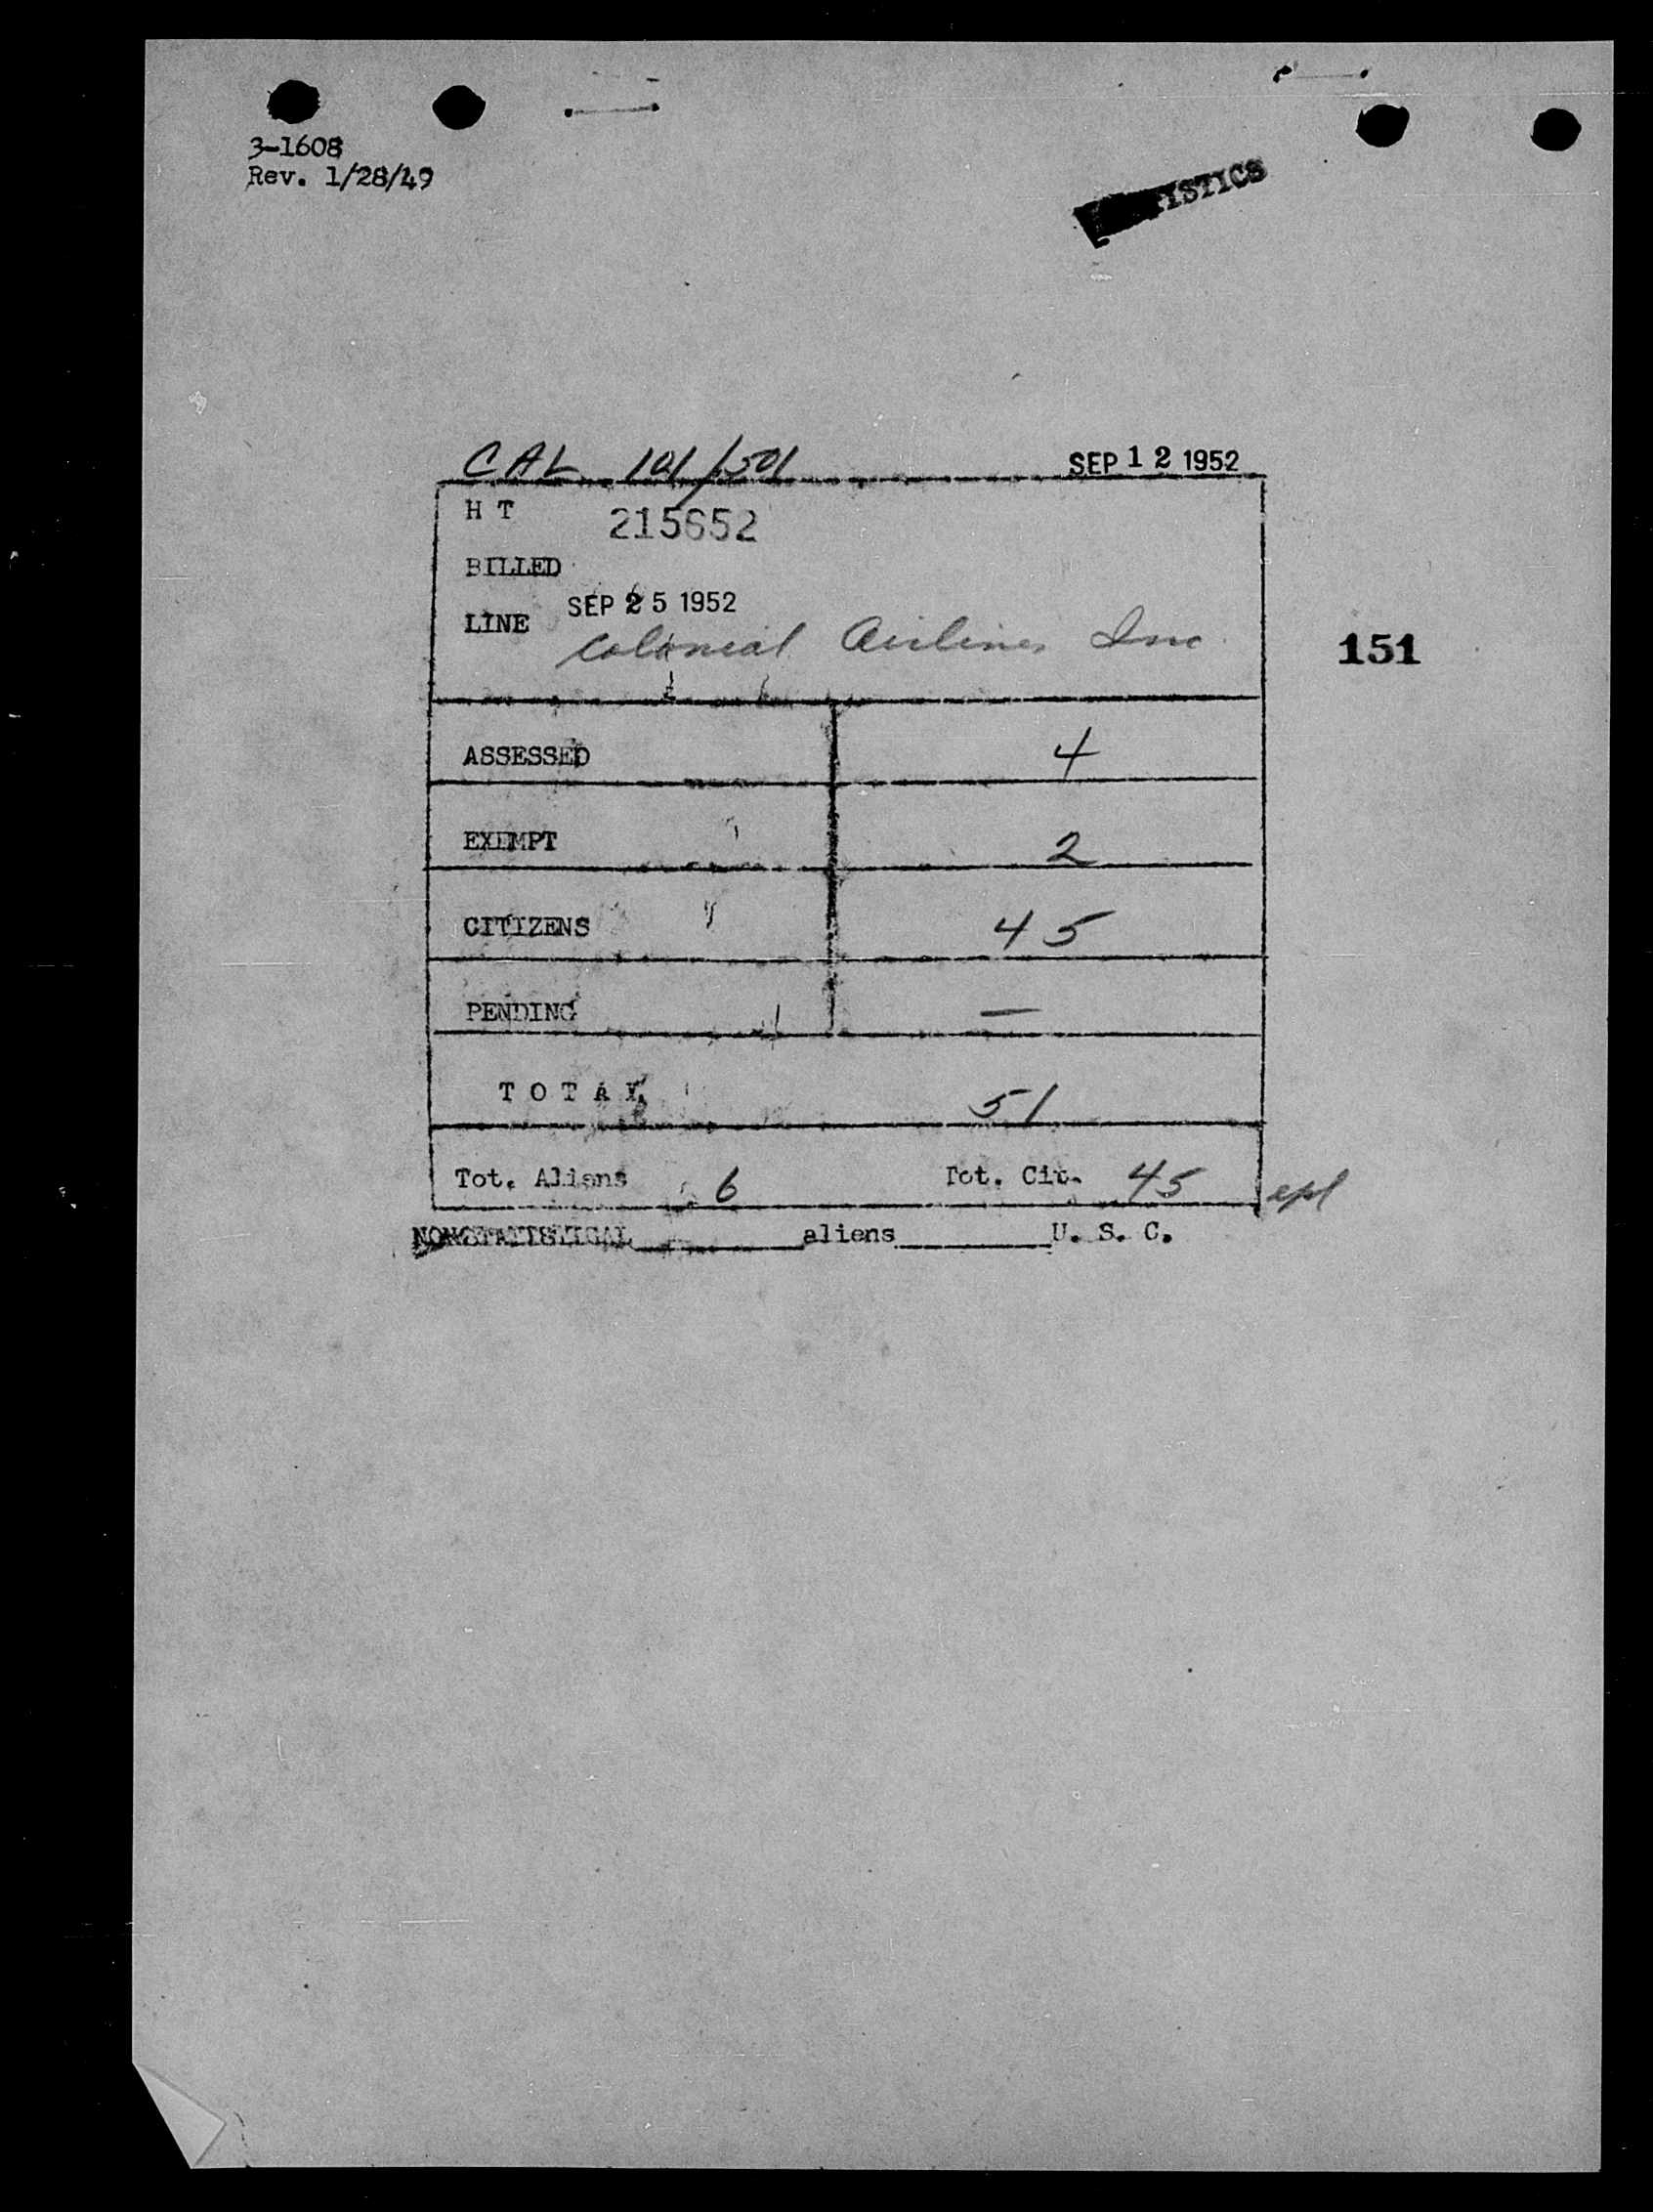 3-1608
Rev. 1/28/49
CAL 101/501 SEP 12 1952
H T 215652
BILLED
SEP 25 1952
LINE Colonial Airlines Inc
151
ASSESSED 4
EXEMPT 2
CITIZENS 45
PENDING —
TOTAL 51
Tot. Aliens 6 Tot. Cit. 45 epl
NONSTATISTICAL aliens U. S. C.